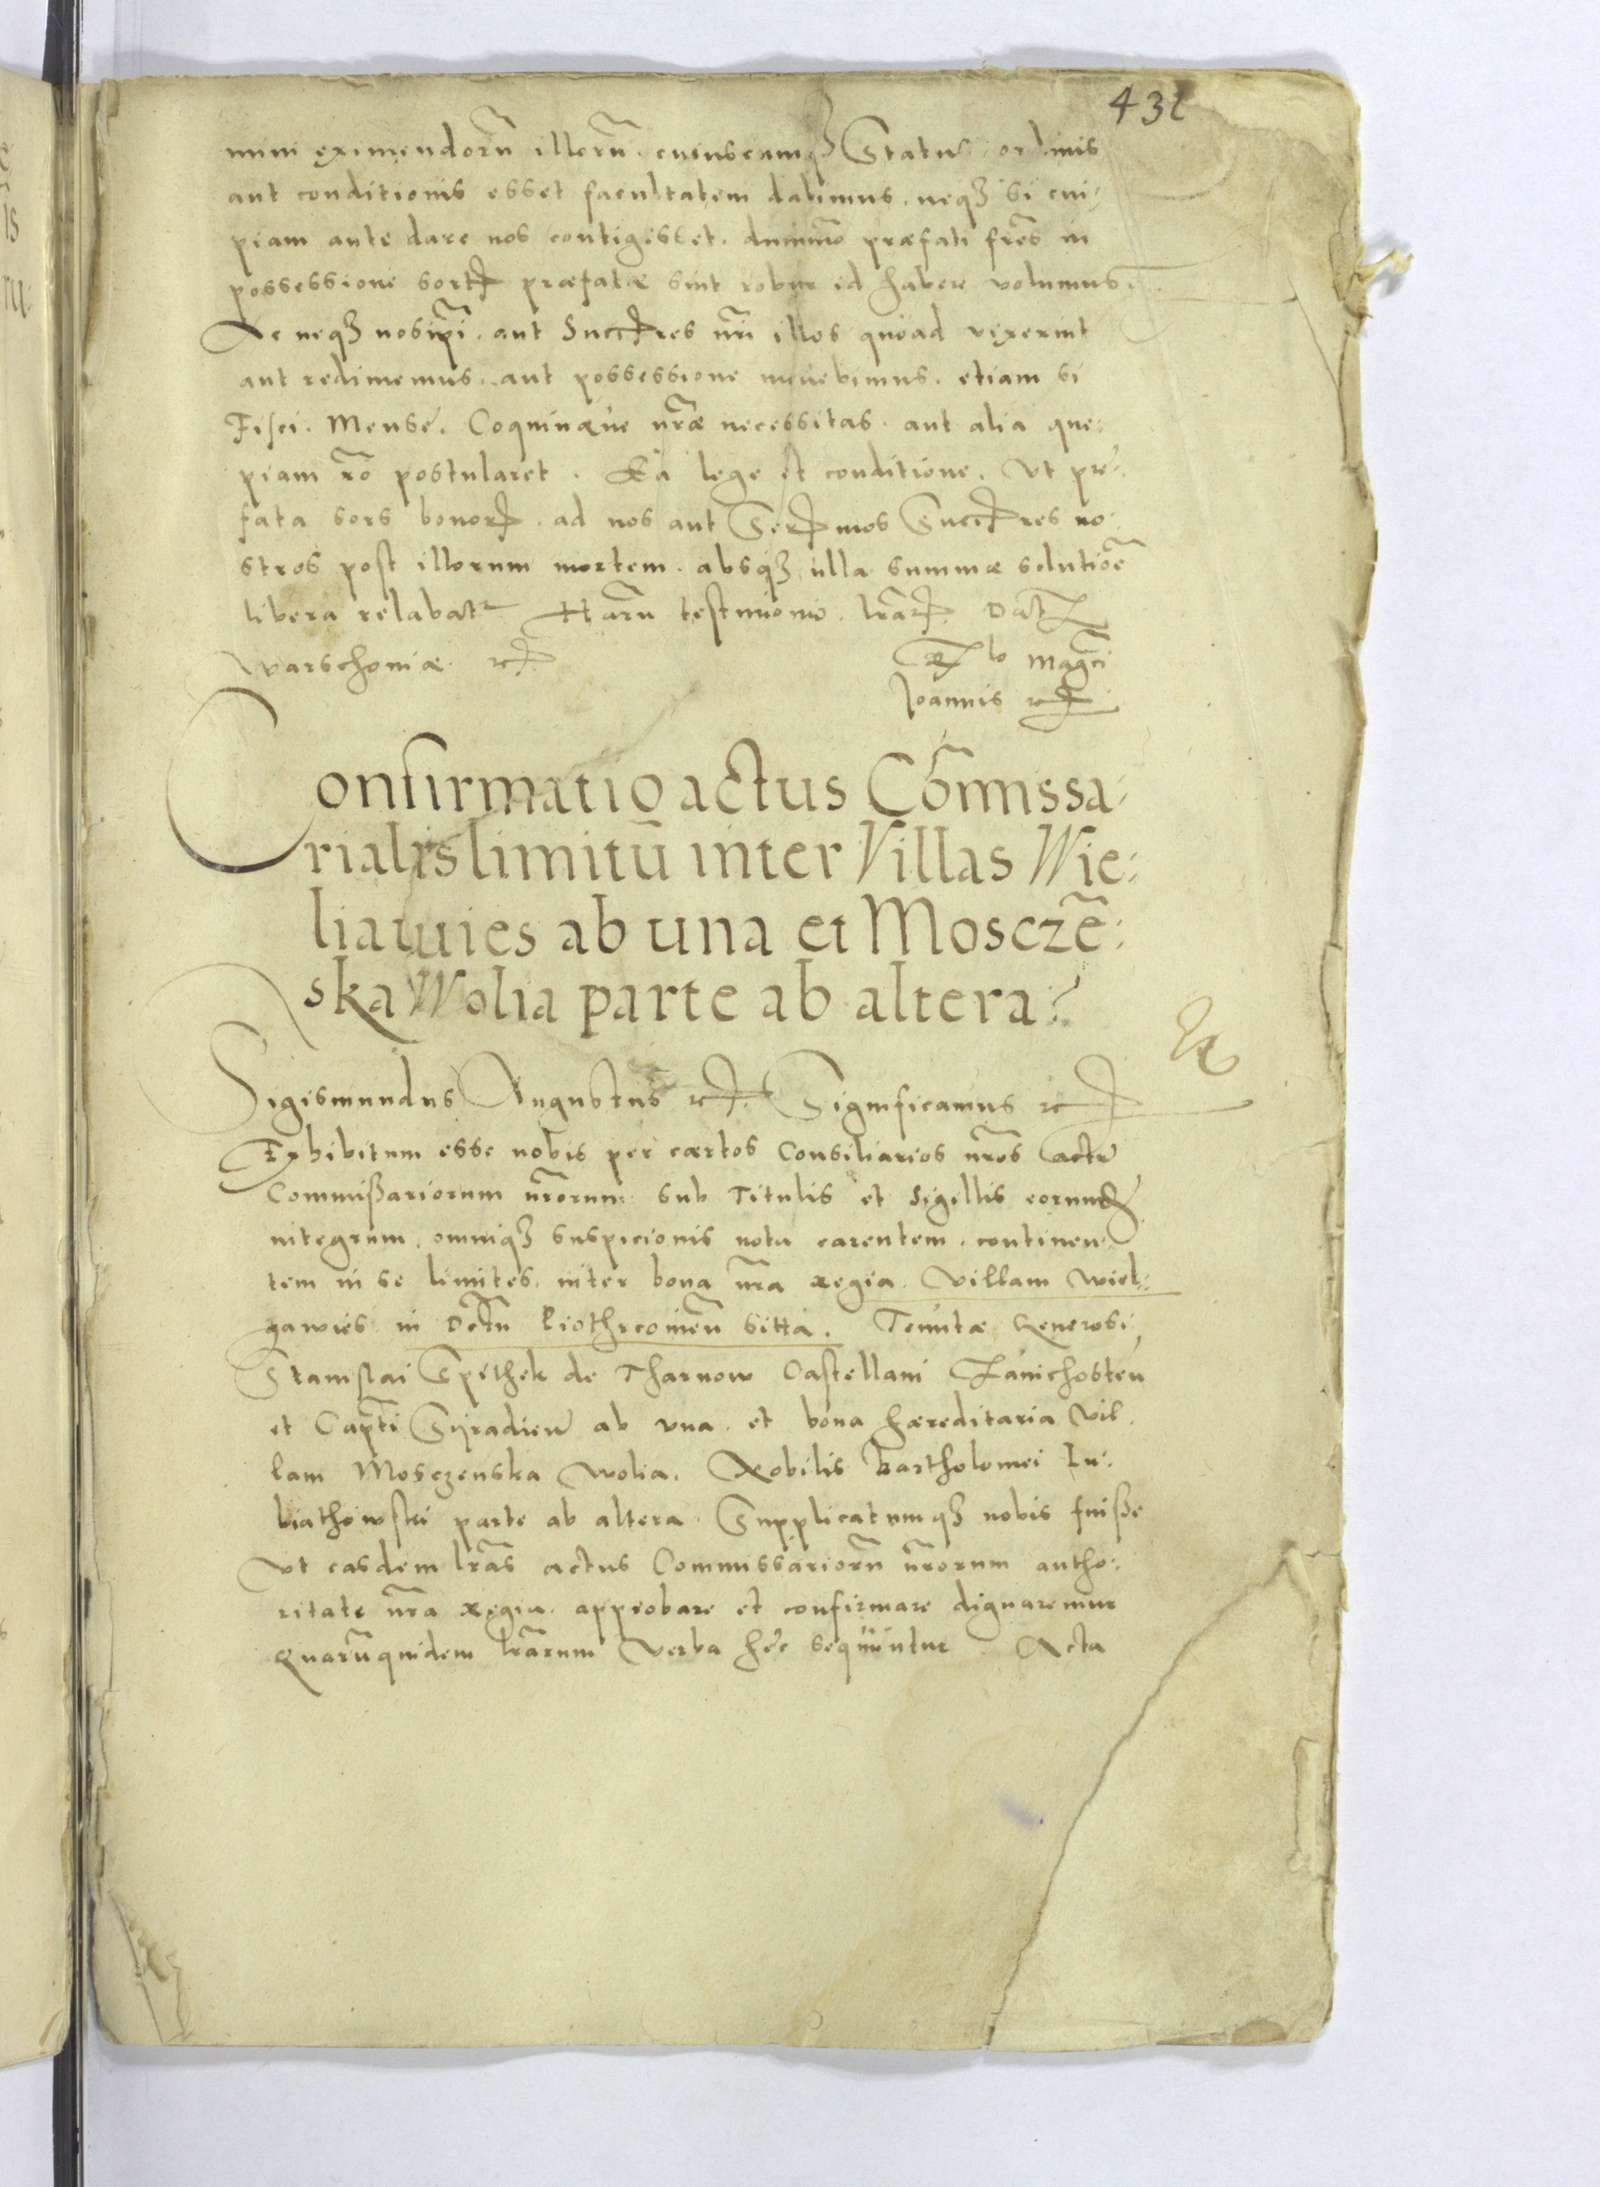 432
mini eximendorū illorū. cuiuscamqȝ Status, ordinis
aut conditionis esset facultatem dabimus, neqȝ si cui-
piam ante dare nos contigisset. dummō præfati frēs in
possessione sortꝭ præfatæ sint robur id habere volumus.
Ac neqȝ nosipi. aut Succꝭres nrī illos quoad vixerint
aut redimemus, aut possessione movebimus, etiam si
Fisci. Mensę. Coquinæue nrāe necessitas. aut alia quę-
piam rō postularet. Ea lege et conditione. Vt prę-
fata sors bonorꝭ. ad nos aut Serꝭmos Succꝭres no-
stros post illorum mortem. absqȝ ulla summæ solutiōe
libera relabatr Harū testimonio lrāꝝ. Datꝭ
Warschoniæ. rꝭ
Rꝭlo Magci
Joannis rꝭ
Confirmatio actus Cōmissa-
rialis limitū inter Villas Wie-
liawies ab una et Mosczē-
ska Wolia parte ab altera
Sigismundus Augustus rꝭ. Significamus rꝭ
Exhibitum esse nobis per certos Consiliarios nrōs actū
Commißariorum nrōrum sub Titulis et Sigillis eorundꝭ
integrum, omniqȝ suspicionis nota carentem, continen-
tem in se limites inter bona nrā regia. Villam Wiel-
gawies in Dctū Piothrcovień sitta. Tenutæ Generosi
Stanislai Spithek de Tharnow Castellani Zawichosteń
et Capti Syradień ab vna. et bona hæreditaria Vil-
lam Mosczenska Wolia. Nobilis Bartholomei Lu-
biathowski parte ab altera. Supplicatumqȝ nobis fuiße
Vt easdem lrās actus Commissariorū nrōrum autho-
ritate nrā regia. approbare et confirmare dignaremur
Quarūquidem lrārum verba hęc sequuntur Acta